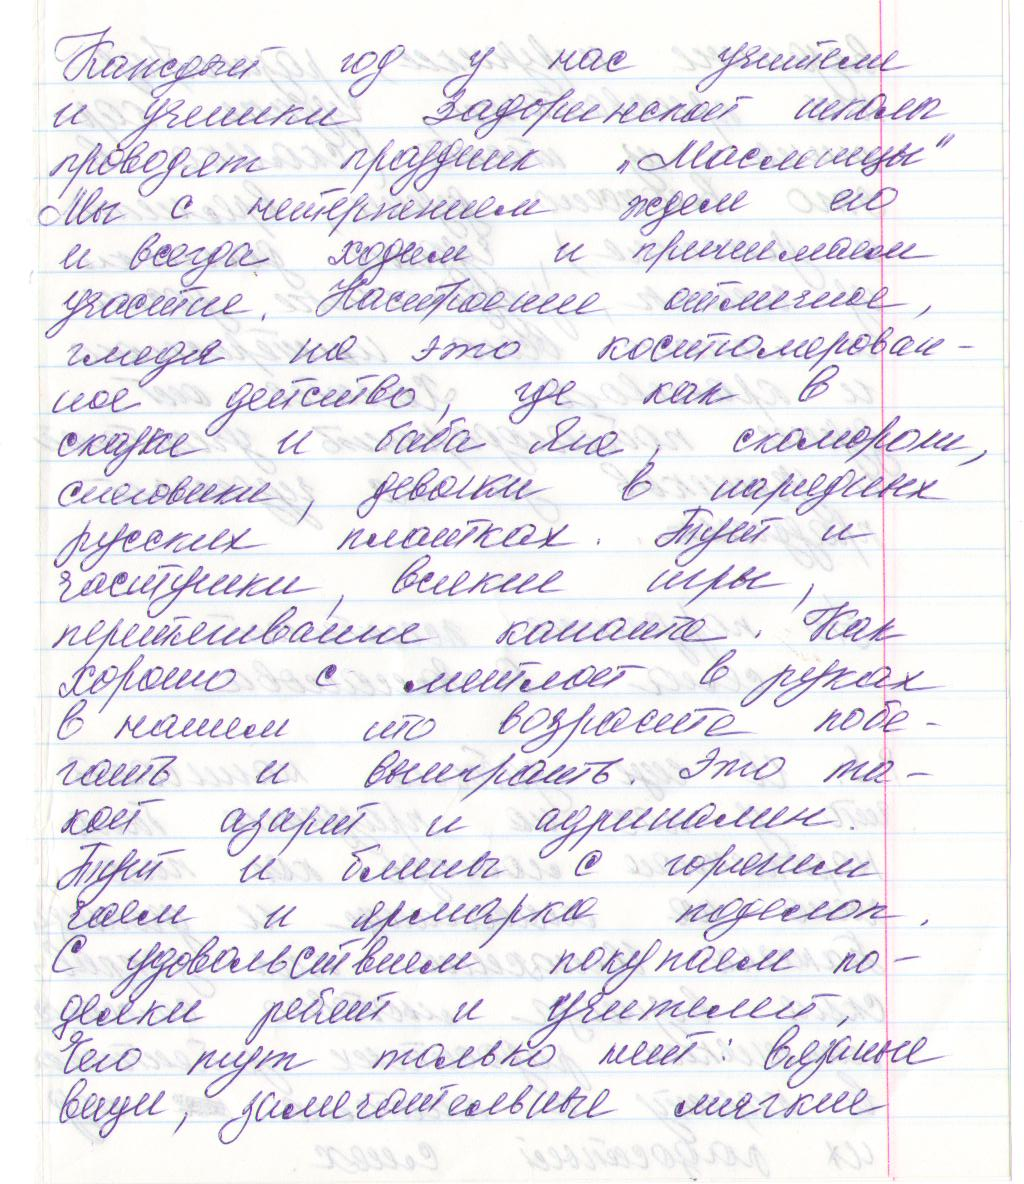 Каждый год у нас учителя
и ученики Задоринской школы
проводят праздник „Масленицы"
Мы с нетерпением ждем его
и всегда ходим и принимаем
участие. Настроение отличное,
глядя на это костюмерован-
ное действо, где как в
сказке и баба Яга, скоморохи,
снеговики, девочки в нарядных
русских платках. Тут и
частушки, всякие игры,
перетягивание каната. Как
хорошо с метлой в руках
в нашем то возрасте побе-
гать и выиграть. Это та-
кой азарт и адриналин.
Тут и блины с горячим
чаем и ярмарка поделок.
С удовольствием покупаем по-
делки ребят и учителей,
Чего тут только нет: вязаные
вещи, замечательные мягкие